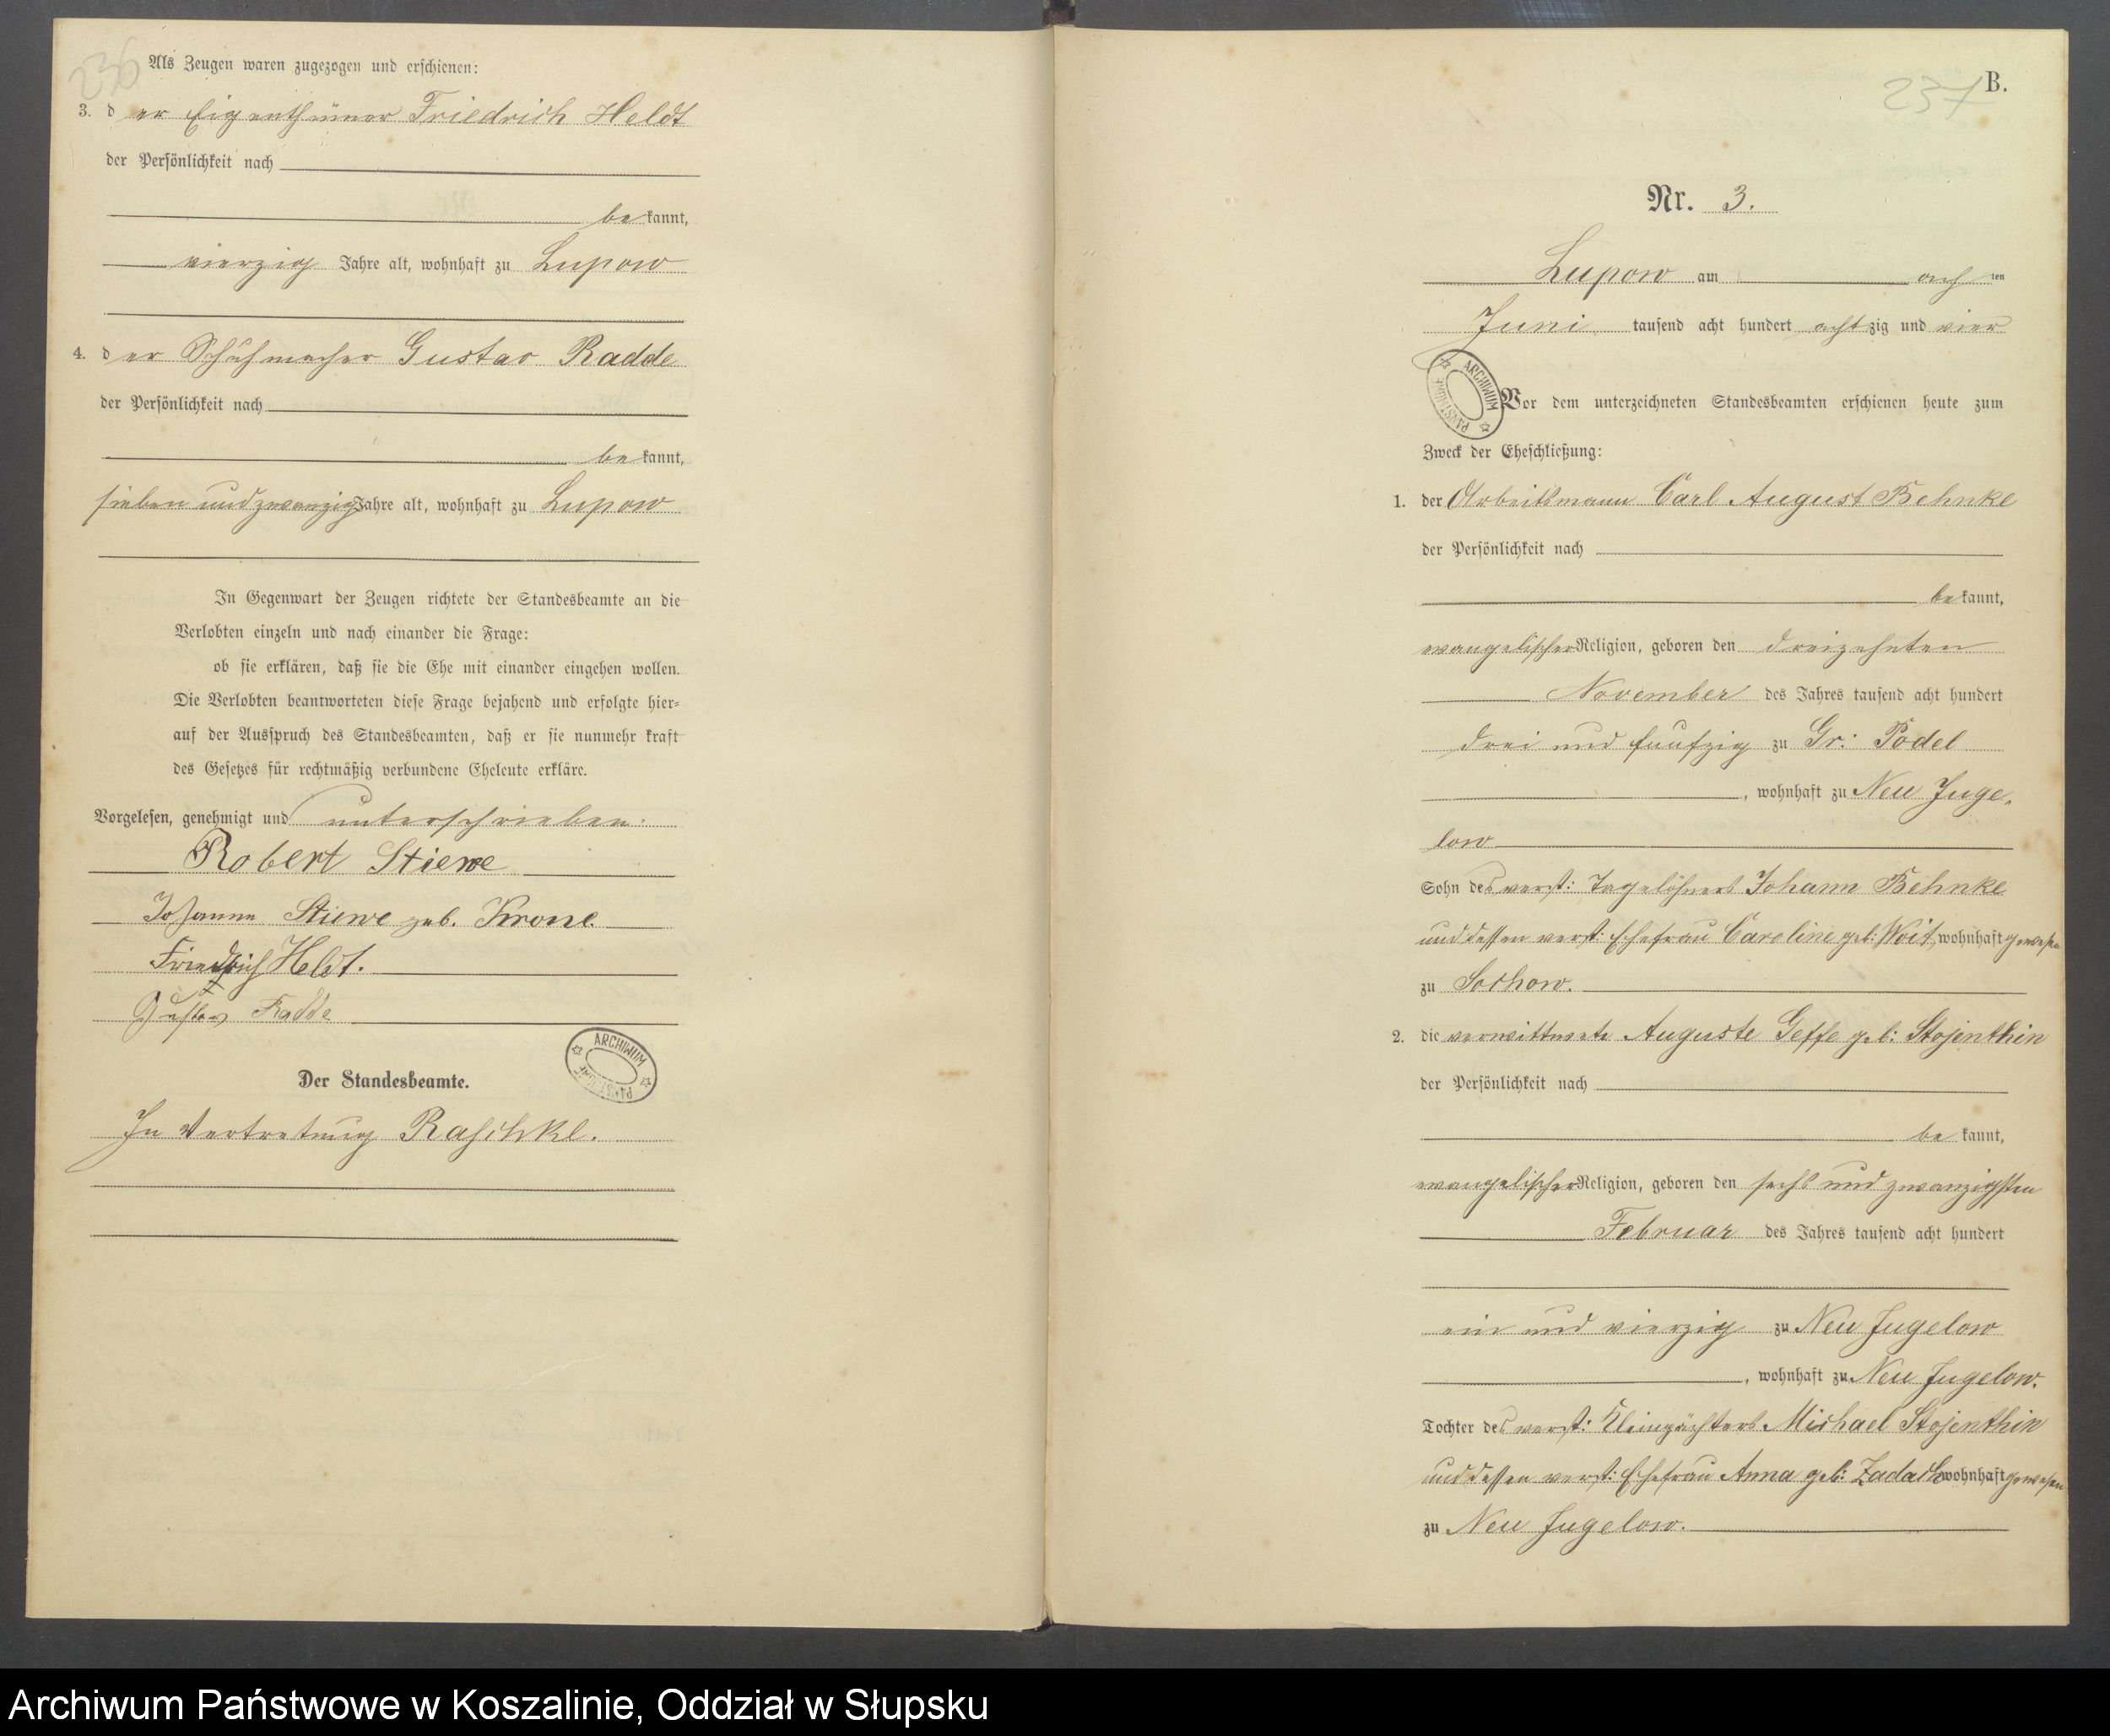 236
Als Zeugen waren zugezogen und erschienen:
3. d er Eigenthümer Friedrich Heldt
der Persönlichkeit nach
be kannt,
vierzig Jahre alt, wohnhaft zu Lupow
4. d er Schuhmacher Gustav Radde
der Persönlichkeit nach
be kannt,
sieben und zwanzig Jahre alt, wohnhaft zu Lupow
In Gegenwart der Zeugen richtete der Standesbeamte an die
Verlobten einzeln und nach einander die Frage:
ob sie erklären, daß sie die Ehe mit einander eingehen wollen.
Die Verlobten beantworteten diese Frage bejahend und erfolgte hier-
auf der Ausspruch des Standesbeamten, daß er sie nunmehr kraft
des Gesetzes für rechtmäßig verbundene Eheleute erkläre.
Vorgelesen, genehmigt und unterschrieben.
Robert Stiewe
Johanna Stiewe geb. Krone.
Friedrich Heldt.
Gustav Radde
ARCHIWUM
Der Standesbeamte.
In Vertretung Raschke.
237 B.
Nr. 3.
Lupow am acht ten
Juni tausend acht hundert achtzig und vier
ARCHIWUM
Vor dem unterzeichneten Standesbeamten erschienen heute zum
Zweck der Eheschließung:
1. der Arbeitsmann Carl August Behnke
der Persönlichkeit nach
be kannt,
evangelischer Religion, geboren den dreizehnten
November des Jahres tausend acht hundert
drei und funfzig zu Gr: Podel
, wohnhaft zu Neu Juge-
low
Sohn des verst: Tagelöhners Johann Behnke
und dessen verst: Ehefrau Caroline geb: Woit, wohnhaft gewesen
zu Sochow.
2. die verwittwete Auguste Geffe geb: Stojenthin
der Persönlichkeit nach
be kannt,
evangelischer Religion, geboren den sechs und zwanzigsten
Februar des Jahres tausend acht hundert
ein und vierzig zu Neu Jugelow
, wohnhaft zu Neu Jugelow.
Tochter des verst: Kleinpächters Michael Stojenthin
und dessen verst: Ehefrau Anna geb: Zadach wohnhaft gewesen
zu Neu Jugelow.
Archiwum Państwowe w Koszalinie, Oddział w Słupsku